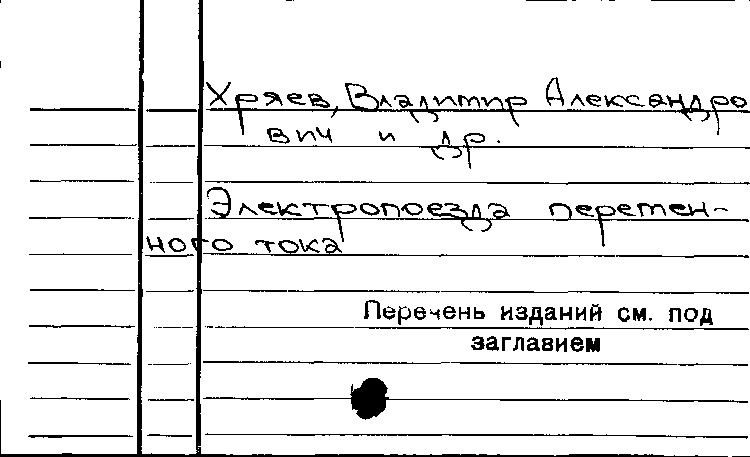 Хряев, Владимир Александро
вич и др.
Электропоезда перемен-
ного тока
Перечень изданий см. под
заглавием